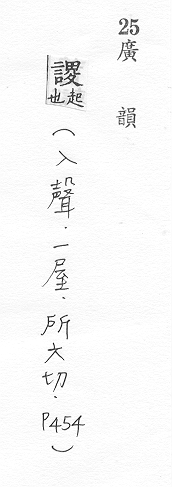 25 廣韻
謖起也(入聲．一屋．所六切．P454)